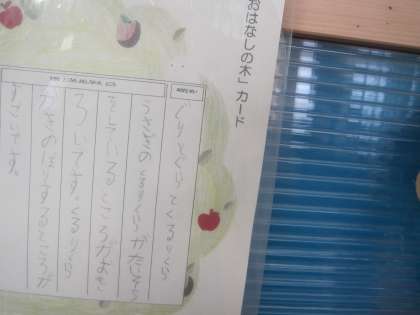 おはなしの木」カード
ぐりとぐらとくるりくら
うさぎのくるりくらがたいそう
をしているところがおもし
ろいです。くるりくら
がきのぼりするところが
すごいです。